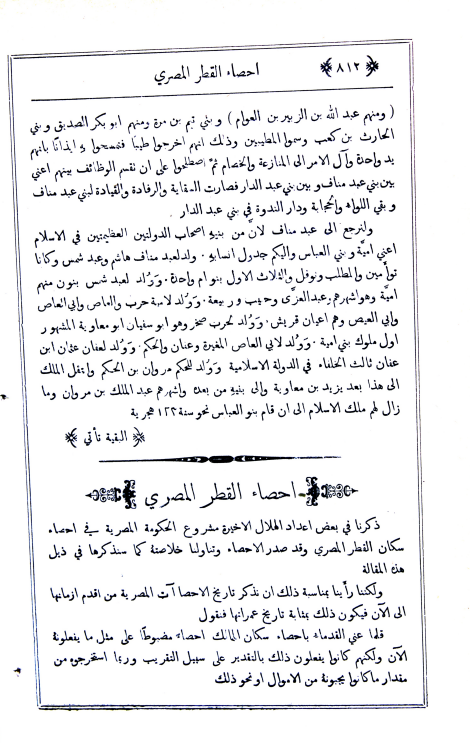 ﴿٨١٢﴾ احصاء القطر المصري
( ومنهم عبد الله بن الزبير بن العوام ) و بني تيم بن مرة ومنهم ابو بكر الصديق و بني
الحارث بن كعب وسموا المطيبين وذلك انهم اخرجوا طيبًا فتمسحوا به ايذانًا بانهم
يد واحدة وآل الامر الى المنازعة والخصام ثم اصطلحوا على ان نقسم الوظائف بينهم اعني
بين بني عبد مناف و بين بني عبد الدار فصارت السقاية والرفادة والقيادة لبني عبد مناف
و بقي اللواء والحجابة ودار الندوة في بني عبد الدار
ولنرجع الى عبد مناف لانَّ من بنيهِ اصحاب الدولتين العظيمتين في الاسلام
اعني اميَّة و بني العباس واليكم جدول انسابهِ ٠ ولد لعبد مناف هاشم وعبد شمس وكانا
توأمين والمطلب ونوفل والثلاث الاول بنو ام واحدة ٠ ووُلد لعبد شمس بنون منهم
اميَّة وهو اشهرهم وعبد العزَّى وحبيب وربيعة ٠ ووُلد لامية حرب والعاص وابي العاص
وابي العيص وهم اعيان قريش ٠ ووُلد لحرب صخر وهو ابو سفيان ابو معاوية المشهور
اول ملوك بني امية ٠ ووُلد لابي العاص المغيرة وعفان والحكم ٠ ووُلد لعفان عثمان ابن
عفان ثالث الخلفاء في الدولة الاسلامية ووُلد للحكم مروان بن الحكم وانتقل الملك
الى هذا بعد يزيد بن معاوية والى بنيهِ من بعده واشهرهم عبد الملك بن مروان وما
زال لهم ملك الاسلام الى ان قام بنو العباس نحو سنة ١٢٢ هجرية
﴿ البقية تأتي ﴾
احصاء القطر المصري
ذكرنا في بعض اعداد الهلال الاخيرة مشروع الحكومة المصرية في احصاء
سكان القطر المصري وقد صدر الاحصاء وتناولنا خلاصتهُ كما سنذكرها في ذيل
هذه المقالة
ولكننا رأينا بمناسبة ذلك ان نذكر تاريخ الاحصاآت المصرية من اقدم ازمانها
الى الآن فيكون ذلك بمثابة تاريخ عمرانها فنقول
قلما عني القدماء باحصاء سكان المالك احصاءً مضبوطًا على مثل ما يفعلونهُ
الآن ولكنهم كانوا يفعلون ذلك بالتقدير على سبيل التقريب وربما استخرجوه من
مقدار ما كانوا يجبونهُ من الاموال او نحو ذلك